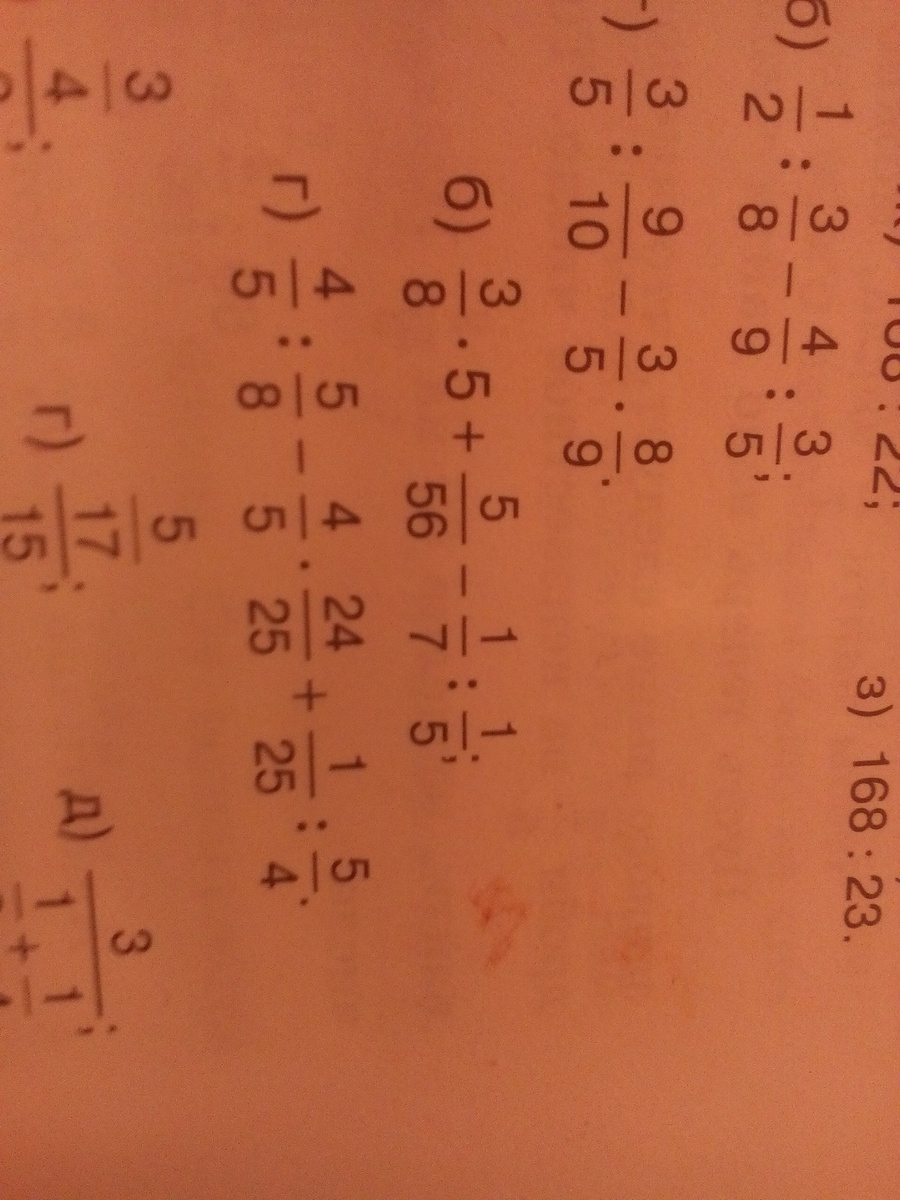 168 : 22;
з) 168 : 23.
б) 1/2 : 3/8 − 4/9 : 3/5;
) 3/5 : 9/10 − 3/5 · 8/9.
б) 3/8 · 5 + 5/56 − 1/7 : 1/5;
г) 4/5 : 5/8 − 4/5 · 24/25 + 1/25 : 5/4.
3
4 ;
г) 5
17
15 ;
д) 3
1 + 1 ;